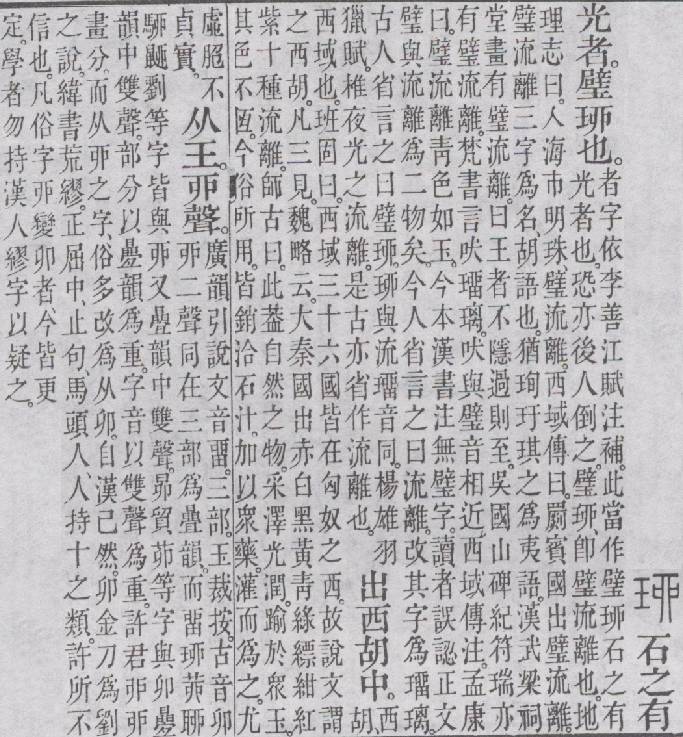 珋 石之有
光者。璧珋也。
者字依李善江賦注補。此當作璧珋石之有
光者也。恐亦後人倒之。璧珋、卽璧流離也。地
理志曰。入海市明珠、璧流離。西域傳曰。罽賓國出璧流離。
璧流離三字爲名。胡語也。猶珣玗琪之爲夷語。漢武梁祠
堂畫有璧流離。曰王者不隱過則至。吳國山碑紀符瑞亦
有璧流離。梵書言吠瑠璃。吠與璧音相近。西域傳注。孟康
曰。璧流離靑色如玉。今本漢書注無璧字。讀者誤認正文
璧與流離爲二物矣。今人省言之曰流離。改其字爲瑠璃。
古人省言之曰璧珋。珋與流瑠音同。楊雄羽
獵賦。椎夜光之流離。是古亦省作流離也。
出西胡中。
西
胡、
西域也。班固曰。西域三十六國皆在匈奴之西。故說文謂
之西胡。凡三見。魏略云。大秦國出赤白黑黃靑綠縹紺紅
紫十種流離。師古曰。此葢自然之物。采澤光潤。踰於衆玉。
其色不恆。今俗所用。皆銷洽石汁。加以衆藥。灌而爲之。尤
虛脃不
貞實。
从王。丣聲。
廣韻引說文音畱。三部。玉裁按。古音卯
丣二聲同在三部爲疊韻。而畱珋茆聊
駵鼺劉等字皆與丣又疊韻中雙聲。昴貿茆等字與卯疊
韻中雙聲。部分以疊韻爲重。字音以雙聲爲重。許君丣丣
畫分。而从丣之字、俗多改爲从卯。自漢已然。卯金刀爲劉
之說。緯書荒繆。正屈中、止句、馬頭人、人持十之類。許所不
信也。凡俗字丣變卯者今皆更
定。學者勿持漢人繆字以疑之。